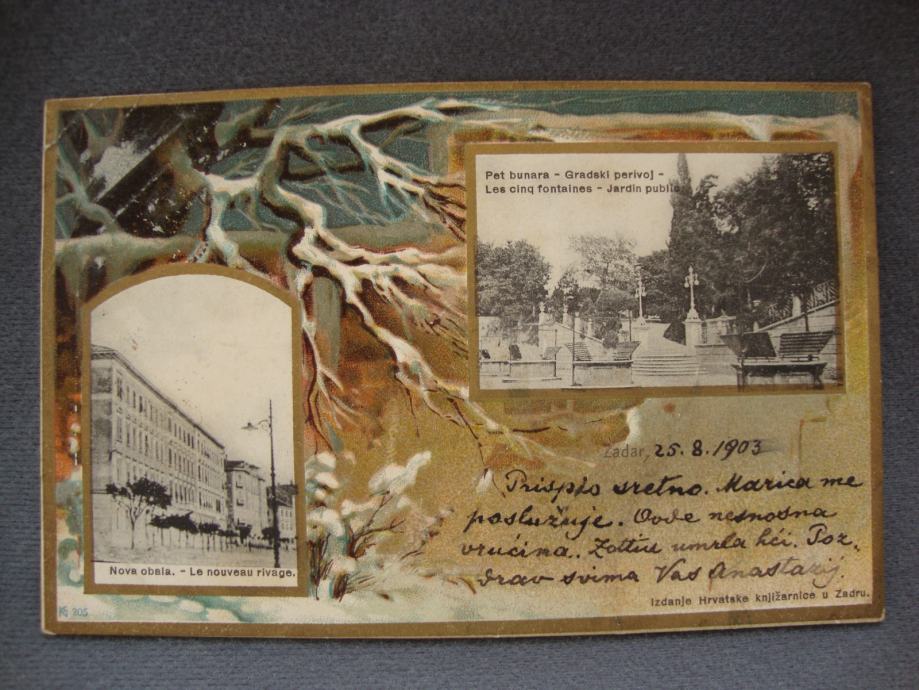 Pet bunara - Gradski perivoj -
Les cinq fontaines - Jardin public
Nova obala. - Le nouveau rivage.
Zadar, 25. 8. 1903
Prispio sretno. Marica me
poslužuje. Ovde nesnosna
vrućina. umrla kći. Poz-
drav svima Vaš Anastazij.
Izdanje Hrvatske knjižarnice u Zadru.
205